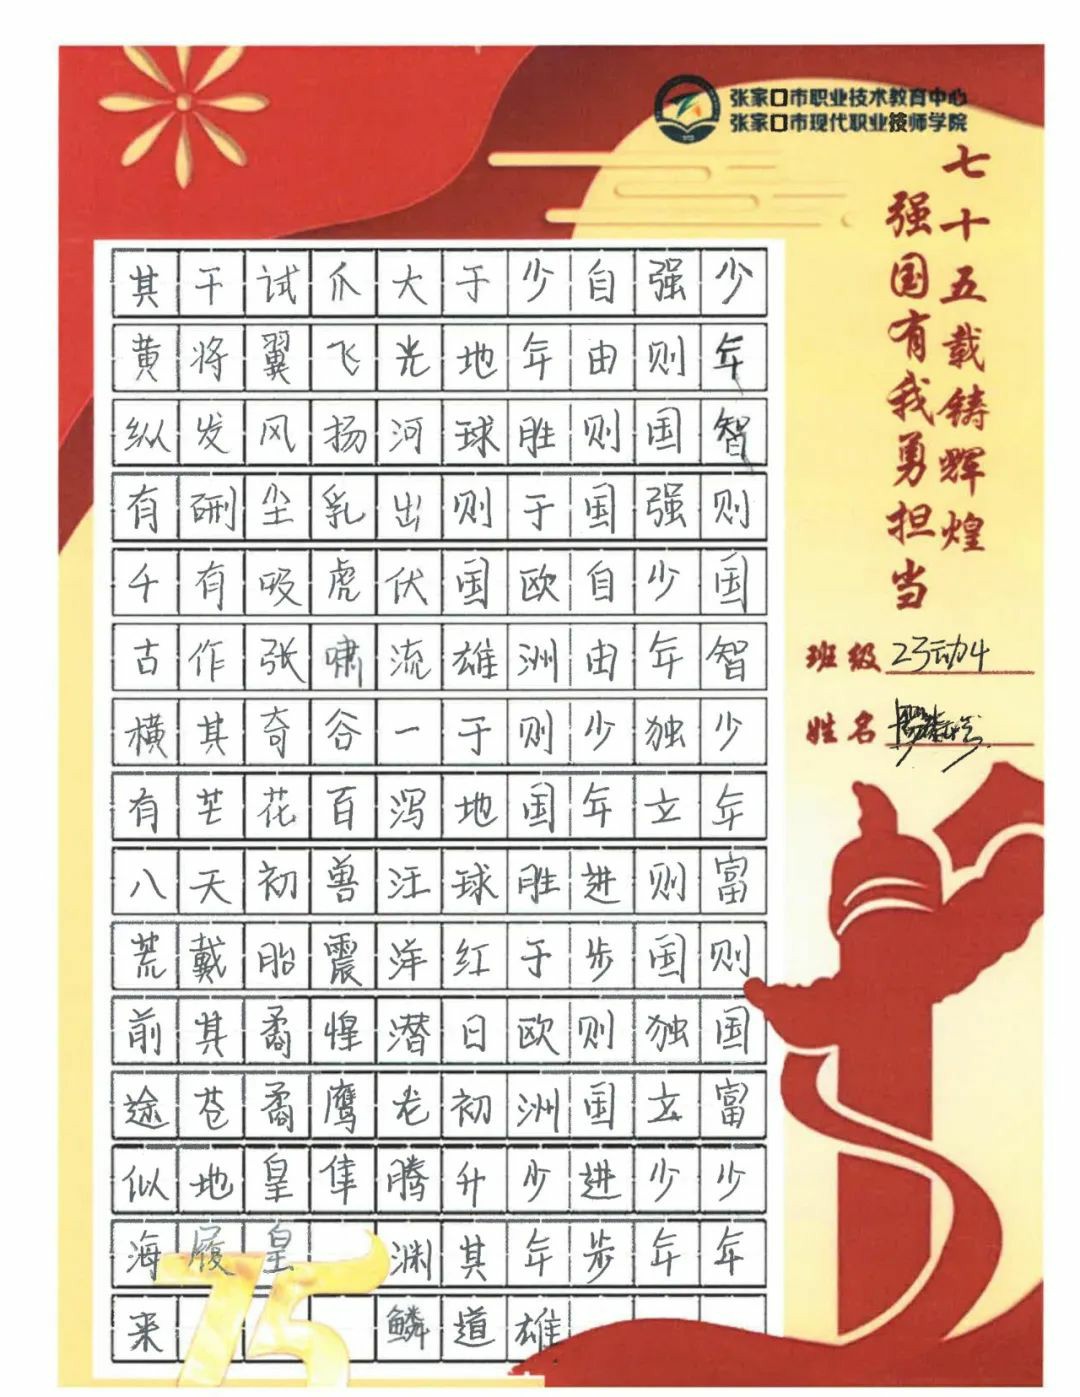 张家口市职业技术教育中心
张家口市现代职业技师学院
七十五载铸辉煌
强国有我勇担当
班级 23动4
姓名
少年智则国智少年富则国富少年
强则国强少年独立则国独立少年
自由则国自由少年进步则国进步
少年胜于欧洲则国胜于欧洲少年雄
于地球则国雄于地球红日初升其道
大光河出伏流一泻汪洋潜龙腾渊鳞
爪飞扬乳虎啸谷百兽震惶鹰隼
试翼风尘吸张奇花初胎矞矞皇皇
干将发硎有作其芒天戴其苍地履
其黄纵有千古横有八荒前途似海来
75